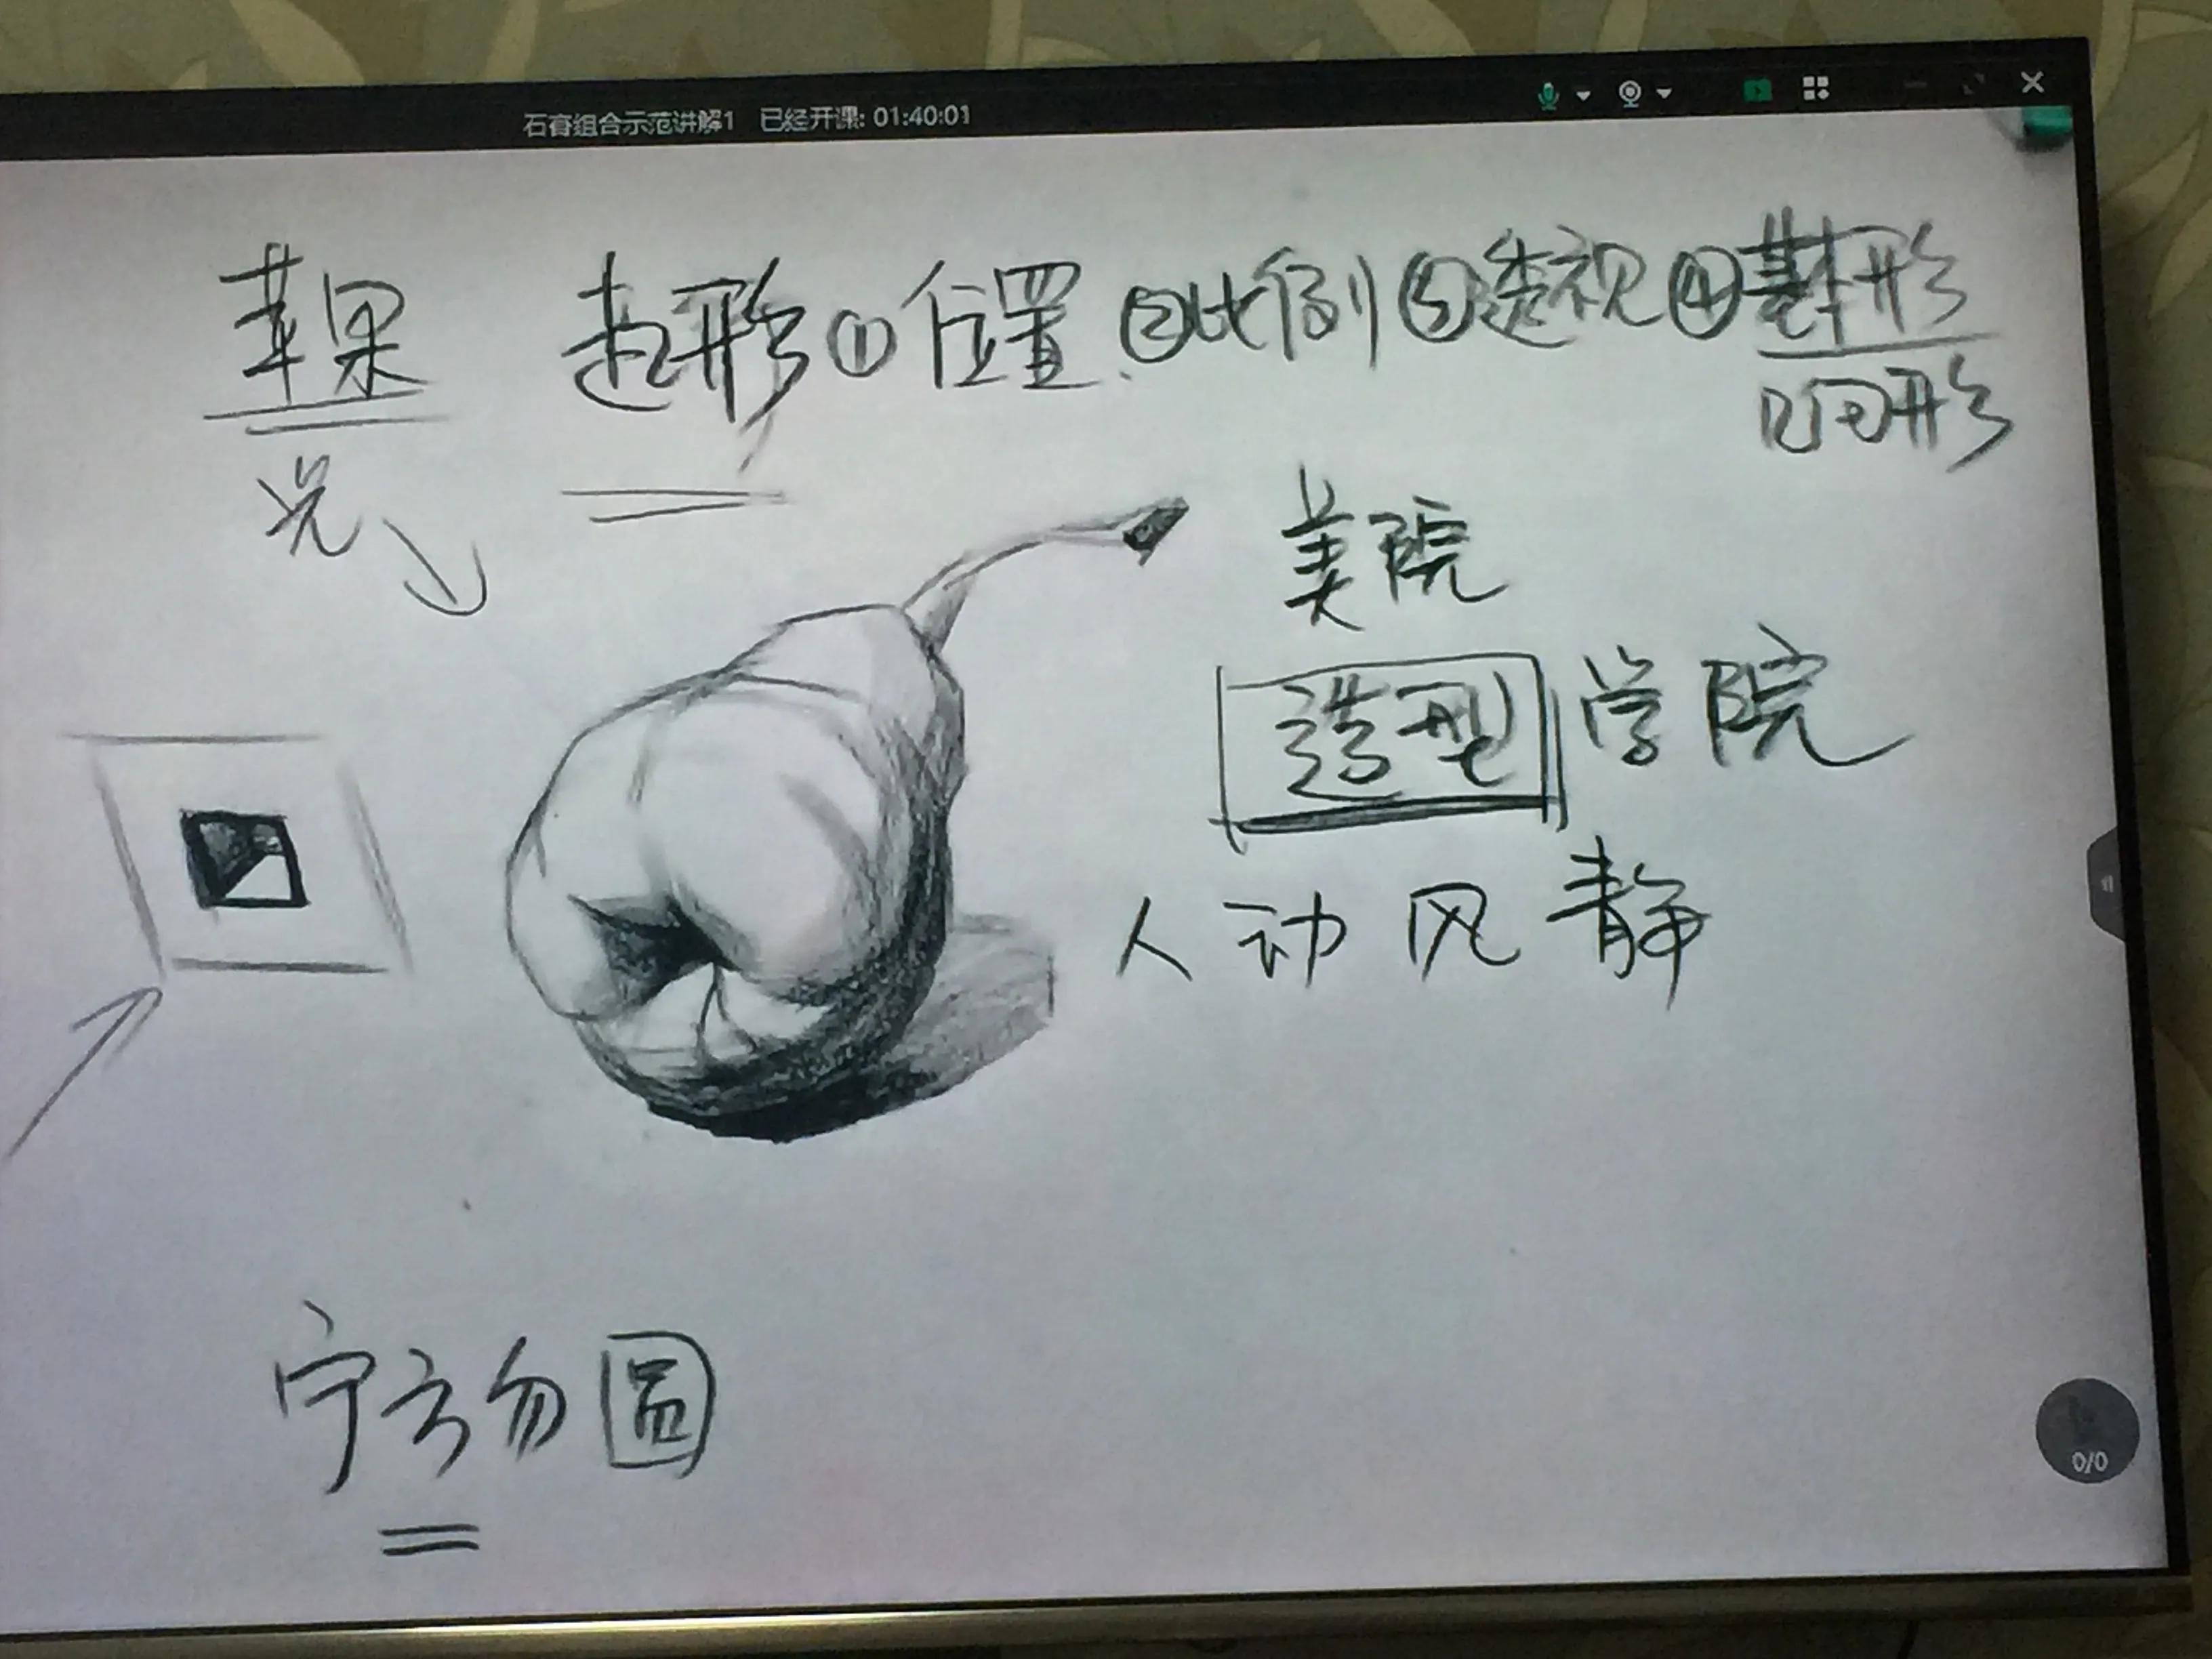 石膏组合示范讲解1 已经开课: 01:40:01
苹果 起形①位置.②比例③透视④基本形
光
美院
造型学院
人 动 风 静
宁方勿圆
0/0